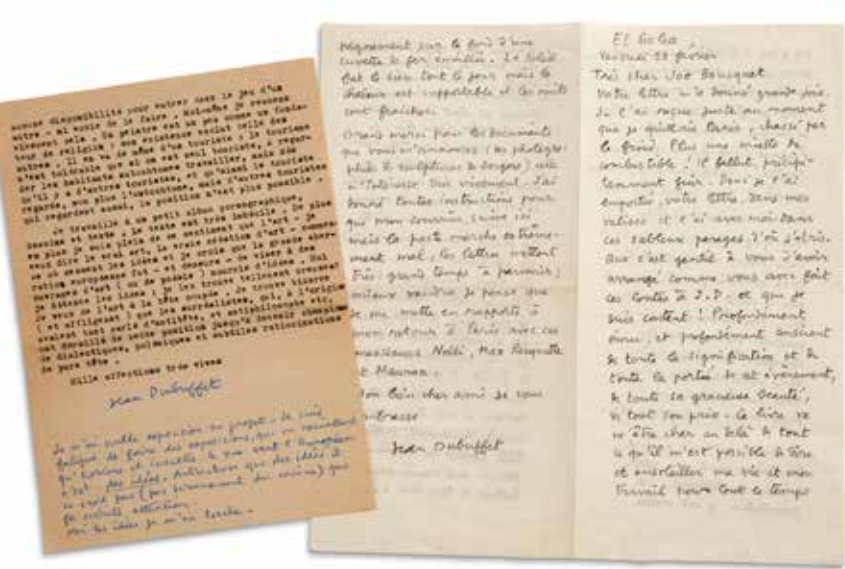 aucune disponibilité pour entrer dans le jeu d'un
autre - ni envie de le faire . Moi-même je ressens
vivement cela . Un peintre est un peu comme un fonda-
teur de religion ; son existence exclut celle des
autres . Il en va de même d'un touriste : le tourisme
n'est tolérable que si on est seul touriste, à regar-
der les habitants autochtones travailler, mais dès
qu'il y a d'autres touristes, et qu'ainsi le touriste
regarde, non plus l'autochtone, mais d'autres touristes
qui regardent aussi, la position n'est plus possible .
Je travaille à un petit album pornographique,
dessins et texte . Le texte est très imbécile . De plus
en plus je suis plein de ce sentiment que l'art - je
veux dire le vrai art, la vraie création d'art - commen-
ce où cessent les idées et je crois que la grande aber-
ration européenne fut - et demeure - de viser à des
ouvrages d'art ( ou de poésie ) nourris d'idées . Moi
je déteste les idées ; je les trouve tellement creuses
Je veux de l'art à la tête coupée . Je trouve bizarre
( et affligeant ) que les surréalistes, qui, à l'origine
avaient tant parlé d'antitête, et antiphilosophie etc,
ont déraillé de cette position jusqu'à devenir champions
de dialectiques, polémiques et subtiles ratiocinations
de pure tête .
Mille affections très vives
Jean Dubuffet
Je n'ai nulle exposition en projet. Je suis
fatigué de faire des expositions, qui ne suscitent
qu'horions et
c'est des idées. que des idées je
ne crois pas
attention.
Moi les idées je m'en torche.
sur le fond d'une
cuvette de fer émaillée. Le soleil
bat le bien tout le jour mais la
chaleur est supportable et les nuits
sont fraîches.
Grand merci pour les documents
que vous m'annoncez (les photogra-
phies de sculptures de bergers) cela
m'intéresse très vivement. J'ai
donné toutes instructions pour
que mon courrier suive ici
mais la poste marche extrême-
ment mal, les lettres mettent
très grand temps à parvenir ;
mieux vaudra je pense que
je me mette en rapports à
mon retour à Paris avec ces
messieurs Nelli, Max Rouquette
et Mauron.
Mon bien cher ami je vous
embrasse
Jean Dubuffet
El Goléa
Vendredi février
Très cher Joë Bousquet
Votre lettre m'a donné grande joie.
Je l'ai reçue juste au moment
que je quittais Paris, chassé par
le froid. Plus une miette de
combustible ! il fallut précipi-
tamment fuir. Donc je l'ai
emportée, votre lettre, dans mes
valises et l'ai avec moi dans
ces sableux parages d'où j'écris.
Que c'est gentil à vous d'avoir
arrangé comme vous avez fait
ces Contes à J.D. et que je
suis content ! Profondément
ému, et profondément conscient
de toute la signification et de
toute la portée de cet évènement,
de toute sa grandeur beauté,
de tout son prix. Ce livre va
m'être cher au delà de tout
ce qu'il m'est possible de dire
et ma vie et mon
travail tout le temps